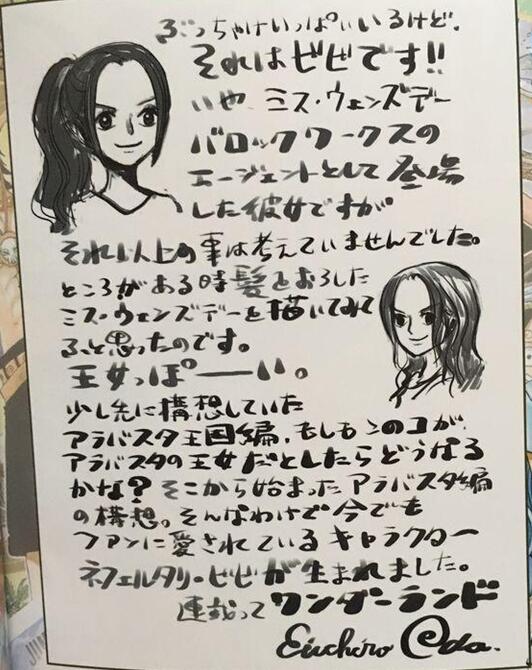 ぶっちゃけいっぱいいるけど、
それはビビです!!
いや、ミス・ウェンズデー
バロックワークスの
エージェントとして登場
した彼女ですが
それ以上の事は考えていませんでした。
ところがある時髪をおろした
ミス・ウェンズデーを描いてみて
ふと思ったのです。
王女っぽーい。
少し先に構想していた
アラバスタ王国編、もしもこのコが、
アラバスタの王女だとしたらどうなる
かな？そこから始まったアラバスタ編
の構想。そんなわけで今でも
ファンに愛されているキャラクター
ネフェルタリ・ビビが生まれました。
連載ってワンダーランド
Eiichiro Oda.